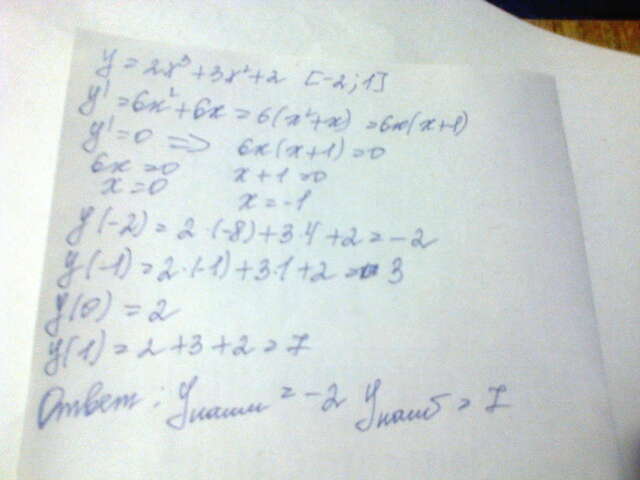 y = 2x³ + 3x² + 2 [-2; 1]
y' = 6x² + 6x = 6(x² + x) = 6x(x + 1)
y' = 0 => 6x(x + 1) = 0
6x = 0 x + 1 = 0
x = 0 x = -1
y(-2) = 2·(-8) + 3·4 + 2 = -2
y(-1) = 2·(-1) + 3·1 + 2 = 3
y(0) = 2
y(1) = 2 + 3 + 2 = 7
Ответ: yнаим = -2 yнаиб = 7